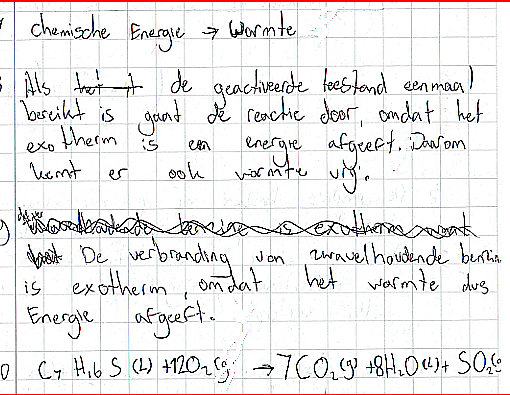 Chemische Energie → Warmte
Als de geactiveerde toestand eenmaal
bereikt is gaat de reactie door, omdat het
exotherm is en energie afgeeft. Daarom
komt er ook warmte vrij.
De verbranding van zwavelhoudende benzin
is exotherm, omdat het warmte dus
Energie afgeeft.
C7 H16 S (l) + 12O2 (g) → 7CO2(g) + 8H2O(l) + SO2(g